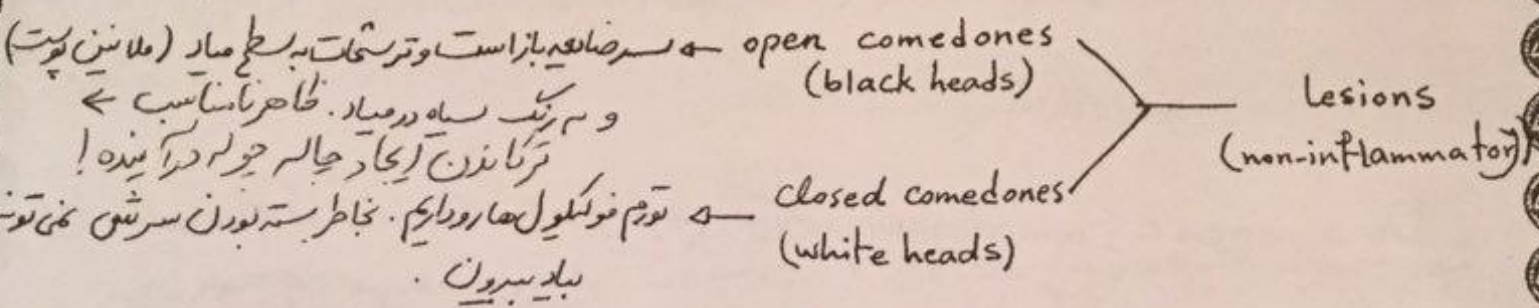 Lesions
(non-inflammatory)
open comedones ← سر ضایعه باز است و ترشحات به سطح میاد (ملانین پوست)
(black heads)
و به رنگ سیاه در میاد. ظاهر نامناسب ←
ترکاندن ایجاد چاله چوله در آینده!
closed comedones ← تورم فولیکول ها رو داریم. بخاطر بسته بودن سرش نمی تونه
(white heads)
بیاد بیرون.